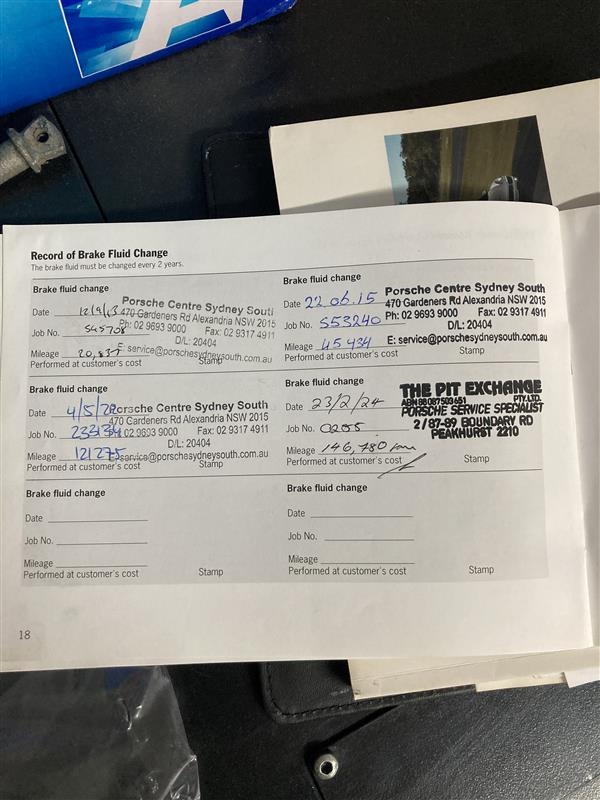 Record of Brake Fluid Change
The brake fluid must be changed every 2 years.
Brake fluid change
Date 12/9/13
Job No. S45708
Mileage 20,837
Performed at customer's cost
Stamp
Porsche Centre Sydney South
470 Gardeners Rd Alexandria NSW 2015
Ph: 02 9693 9000 Fax: 02 9317 4911
D/L: 20404
E: service@porschesydneysouth.com.au
Brake fluid change
Date 22.06.15
Job No. S53240
Mileage 45434
Performed at customer's cost
Stamp
Porsche Centre Sydney South
470 Gardeners Rd Alexandria NSW 2015
Ph: 02 9693 9000 Fax: 02 9317 4911
D/L: 20404
E: service@porschesydneysouth.com.au
Brake fluid change
Date 4/5/20
Job No.
Mileage 121275
Performed at customer's cost
Stamp
Porsche Centre Sydney South
470 Gardeners Rd Alexandria NSW 2015
02 9693 9000 Fax: 02 9317 4911
D/L: 20404
service@porschesydneysouth.com.au
Brake fluid change
Date 23/2/24
Job No. 0255
Mileage 146,780 km
Performed at customer's cost
Stamp
THE PIT EXCHANGE
ABN 88087503651 PTY.LTD.
PORSCHE SERVICE SPECIALIST
2/87-89 BOUNDARY RD
PEAKHURST 2210
Brake fluid change
Date
Job No.
Mileage
Performed at customer's cost
Stamp
Brake fluid change
Date
Job No.
Mileage
Performed at customer's cost
Stamp
18